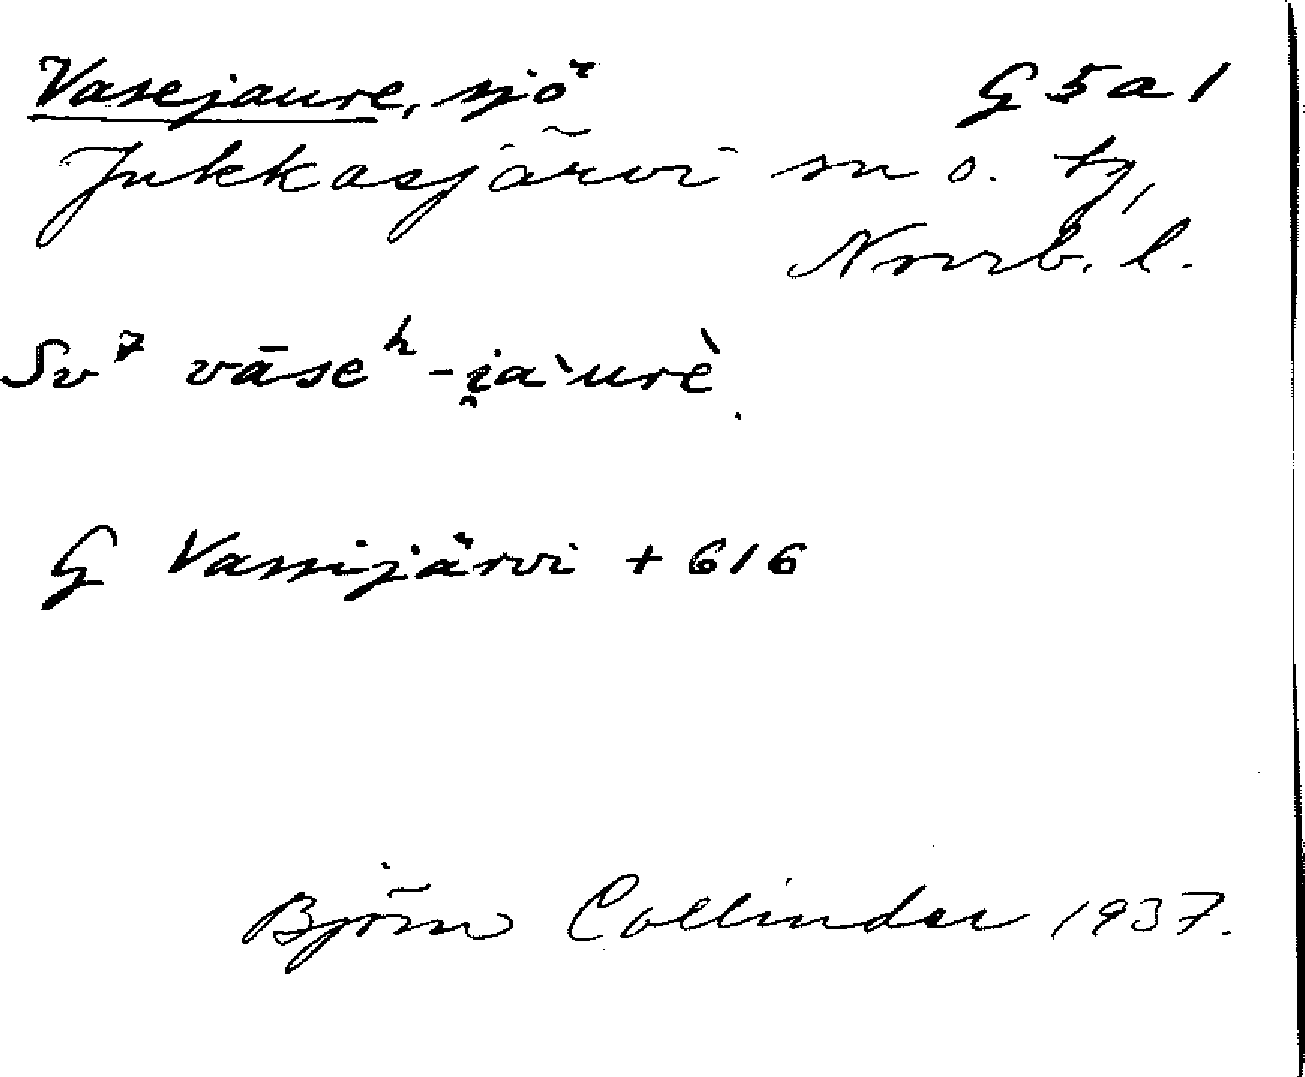 Vasejaure, sjö G 5 a 1
Jukkasjärvi sn o. tg,
Norrb. l.
Sv⁷ vāseʰ -i̯a`urè.
G Vassijärvi + 616
Björn Collinder 1937.